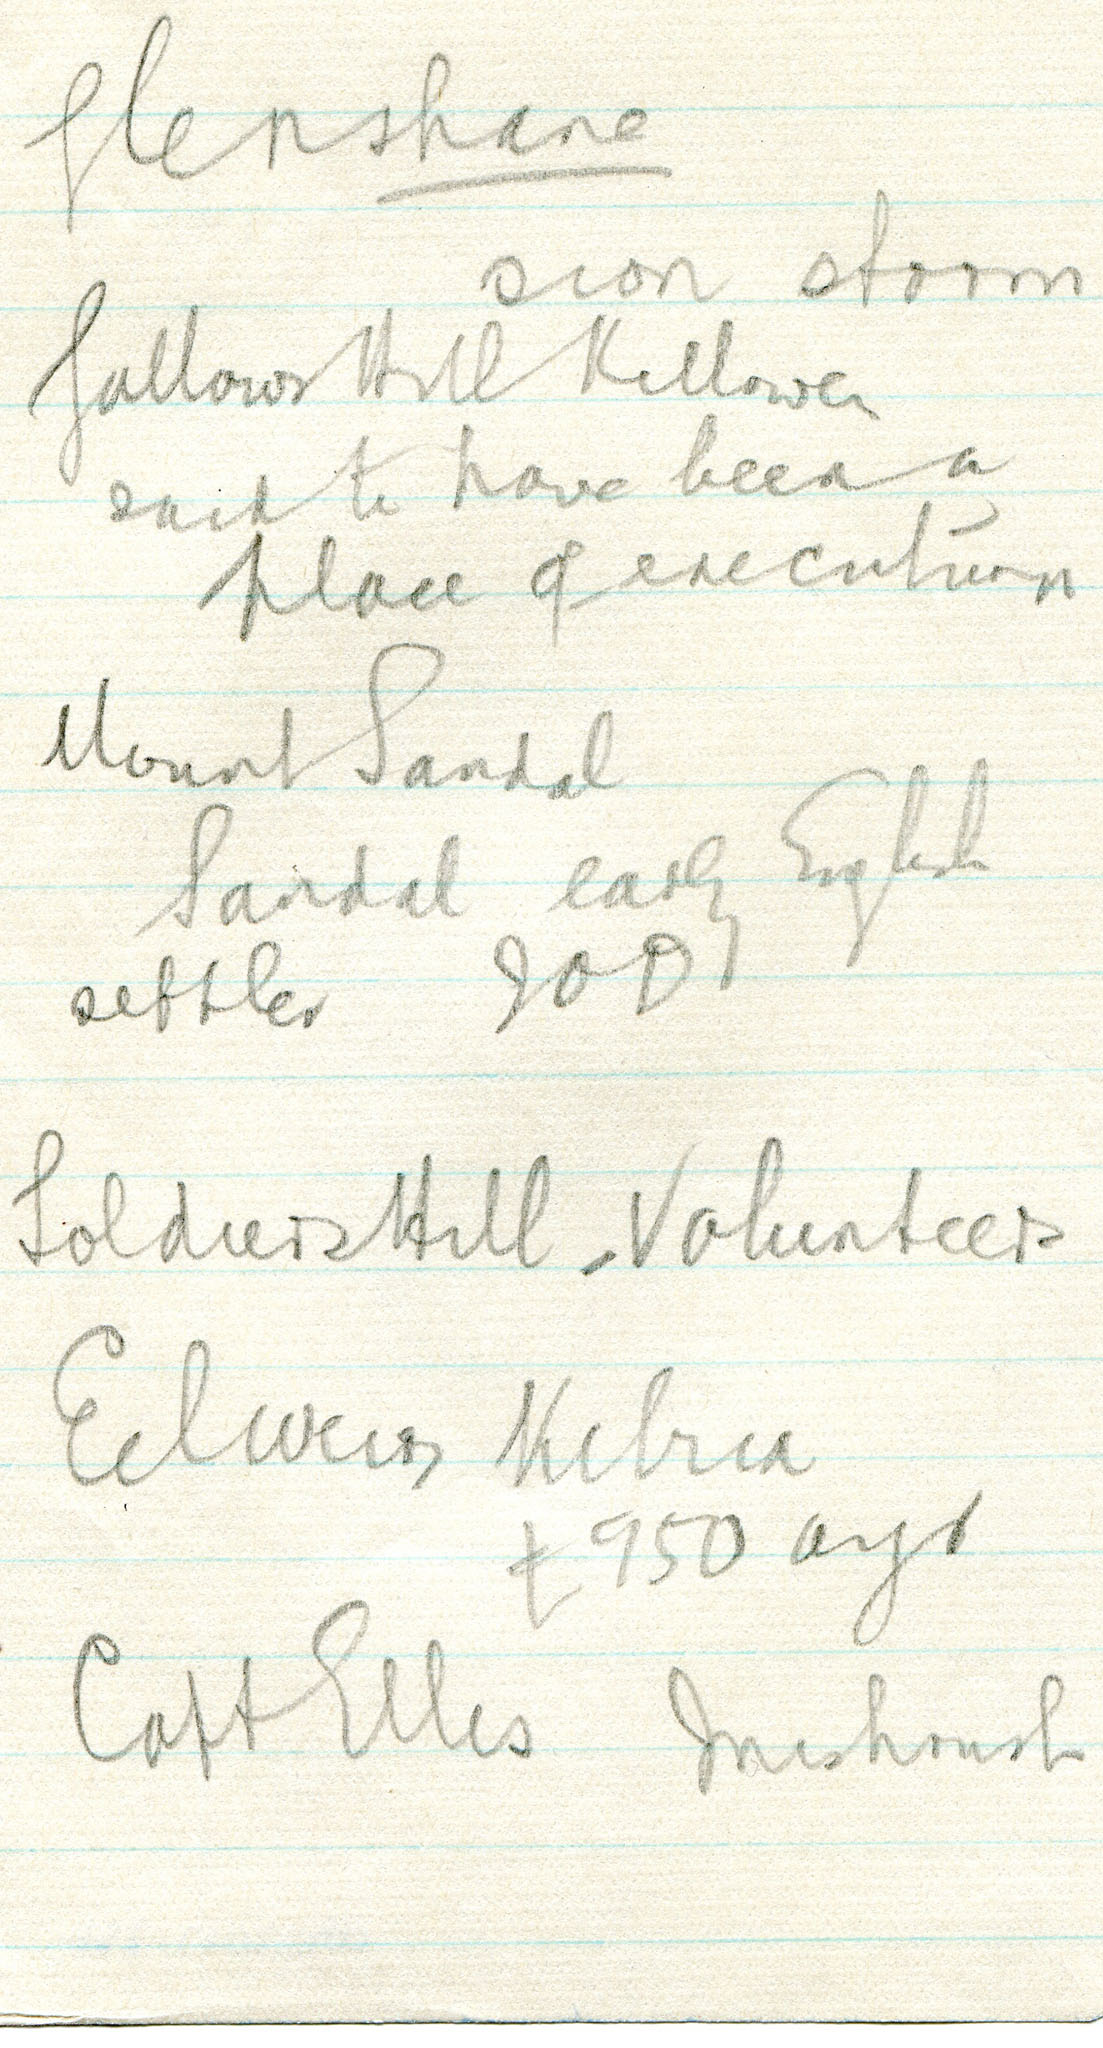 Glenshane
sion storm
Gallows Hill Killowen
said to have been a
place of execution
Mount Sandal
Sandal early English
settler JOD
Soldiers Hill - Volunteers
Eel weirs
£950 ayr
Capt Ellis Innishrush